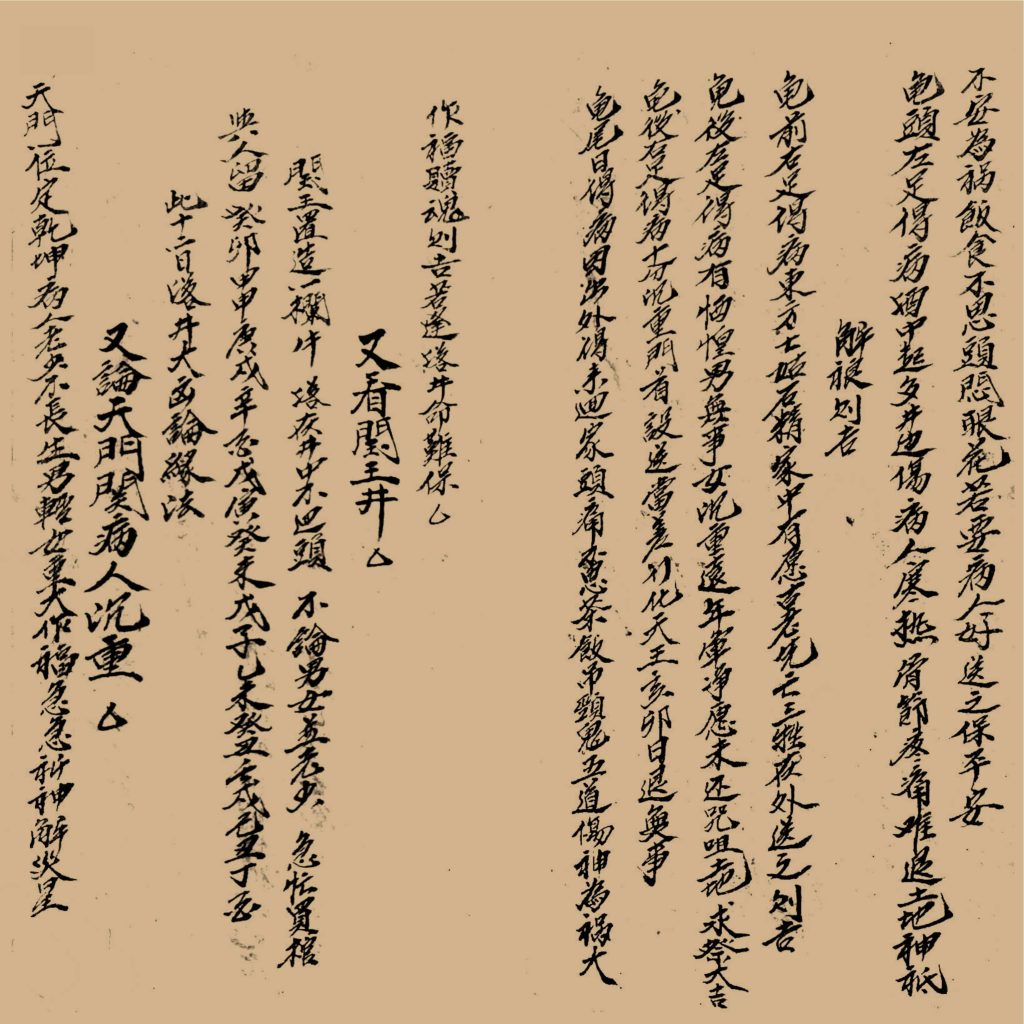 不安為禍飯食不思頭悶眼花若要病人好送之保平安
龟頭左足得病酒中起多井边傷病人寒热骨節疼痛难退土地神祗
解禳则吉
龟前右足得病東方土姑石精家中有愿古老先亡三牲夜外送之则吉
龟後左足得病有恓惶男無事女沉重遠年軍净愿未还咒咀土地求祭大吉
龟後右足得病十分沉重門首設送當差引化天王亥卯日退無事
龟尾日得病因出外得未迴家頭痛思茶飯吊頸鬼五道傷神為禍大
作福贖魂则吉若逢落井命難保
又看閻王井
閻王置造一欄牛 落在井中不迴頭 不論男女並老少 急忙買棺
與人留 癸卯甲申庚戌辛亥戊寅癸未戊子乙未癸丑壬戌己丑丁亥
此十二日落井大凶論緣法
又論天門関病人沉重
天門位定乾坤病人老少不長生男輕女重大作福急急祈神解災星